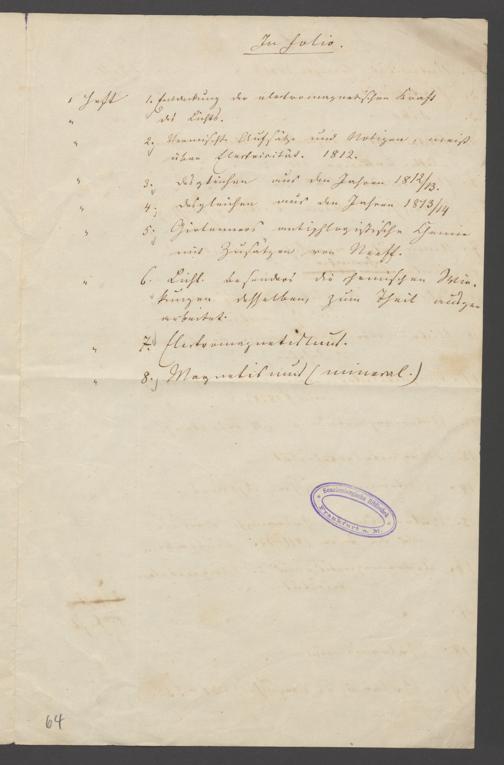 In Folio.
1 Heft 1. Entdeckung der electromagnetischen Kraft
" des Lichts.
" 2. Vermischte Aufsätze und Notizen, meist
über Electricität. 1812.
" 3. desgleichen aus den Jahren 1812/13.
" 4. desgleichen aus den Jahren 1813/14
" 5. Girtanners antiphlogistische Chemie
mit Zusätzen von Neeff.
" 6. Licht. besonders die chemischen Wir-
kungen desselben, zum Theil ausge-
arbeitet.
" 7. Electromagnetismus.
" 8. Magnetismus (mineral.)
Senckenbergische Bibliothek
Frankfurt a. M.
64